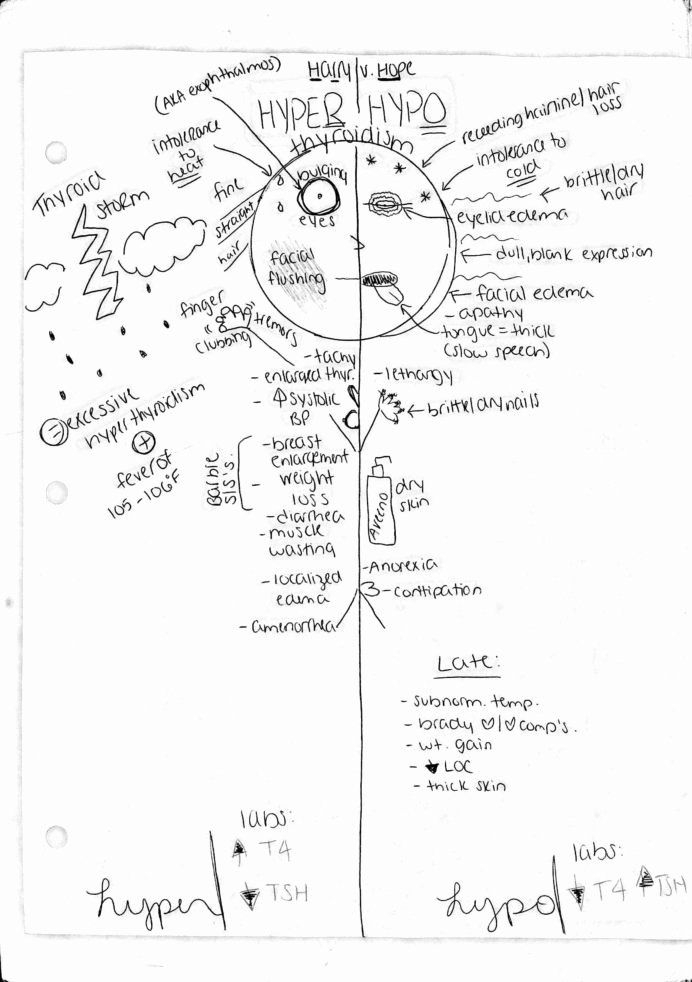 Harry v. Hope
HYPER HYPO
thyroidism
(AKA exophthalmos)
intolerance
to
heat
fine
straight
hair
bulging
eyes
facial
flushing
Thyroid
storm
finger
clubbing
tremors
= excessive
hyperthyroidism
+
fever of
105-106°F
- tachy
- enlarged thyr.
- ↑ systolic
BP
Barbie
S/S's:
- breast
enlargement
- weight
loss
- diarrhea
- muscle
wasting
- localized
edema
- amenorrhea
receding hairline/hair
loss
intolerance to
cold
brittle/dry
hair
eyelid edema
dull, blank expression
facial edema
- apathy
tongue = thick
(slow speech)
- lethargy
brittle/dry nails
Aveeno
dry
skin
- Anorexia
- contipation
Late:
- subnorm. temp.
- brady ♡/♡ comp's.
- wt. gain
- ↓ LOC
- thick skin
hyper
labs:
↑ T4
↓ TSH
hypo
labs:
↓ T4 ↑ TSH